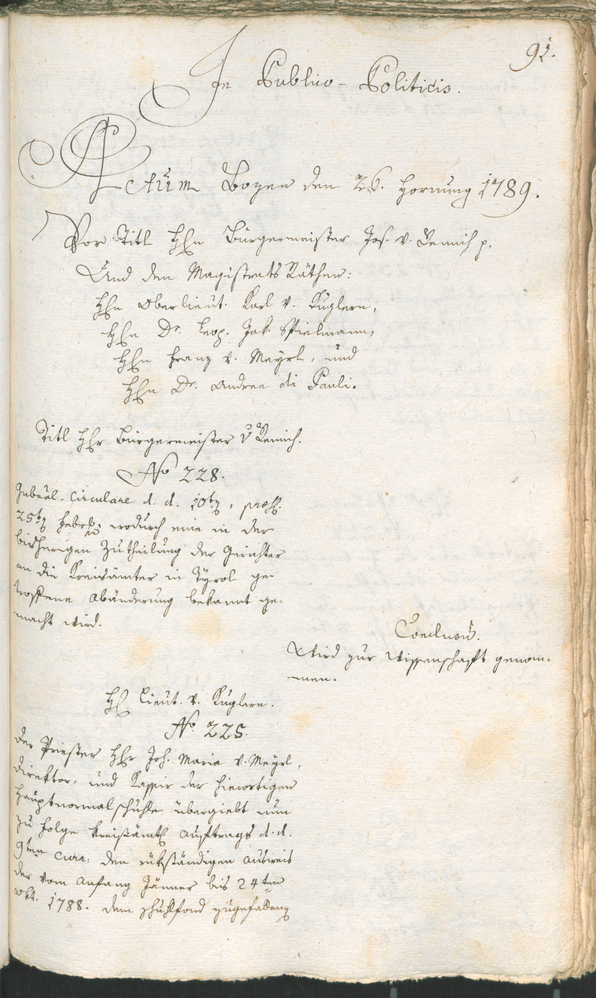 92.
In Publico-Politicis.
Actum Bozen den 26. Hornung 1789.
Vor Titl Hhn Bürgermeister Jos. v. Remich p.
Und den Magistrats Räthen:
Hhn Oberlieut. Karl v. Kuglern,
Hhn Dr. Leop. Jak. Spielmann,
Hhn Franz v. Mayrl, und
Hhn Dr. Andree di Pauli.
Titl Hhr Bürgermeister v. Remich.
No 228.
Gubrial-Circulare d. d. 10ten, pres.
25ten hebrb, wodurch eine in der
bisherigen Zutheilung der Gerichter
an die Kreisämter in Tyrol ge-
troffene Abänderung bekannt ge-
macht wird.
Conclusum.
Wird zur Wissenschaft genom-
men.
Hh Lieut. v. Kuglern.
No 225.
Der Priester Hhr Joh. Maria v. Mayrl,
Direktor, und Kassir der hierortigen
Hauptnormalschuhle übergiebt nun
zu folge kreisämtl Auftrags d. d.
9ten curr. den rükständigen Ausweis
der vom Anfang Jänner bis 24ten
Okt. 1788. dem Schuhlfond zugefallenen